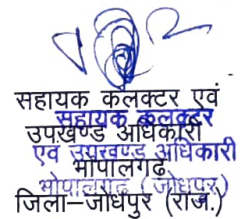 सहायक कलक्टर एवं
सहायक कलक्टर
उपखण्ड अधिकारी
एवं उपखण्ड अधिकारी
भोपालगढ
भोपालगढ (जोधपुर)
जिला–जोधपुर (राज.)